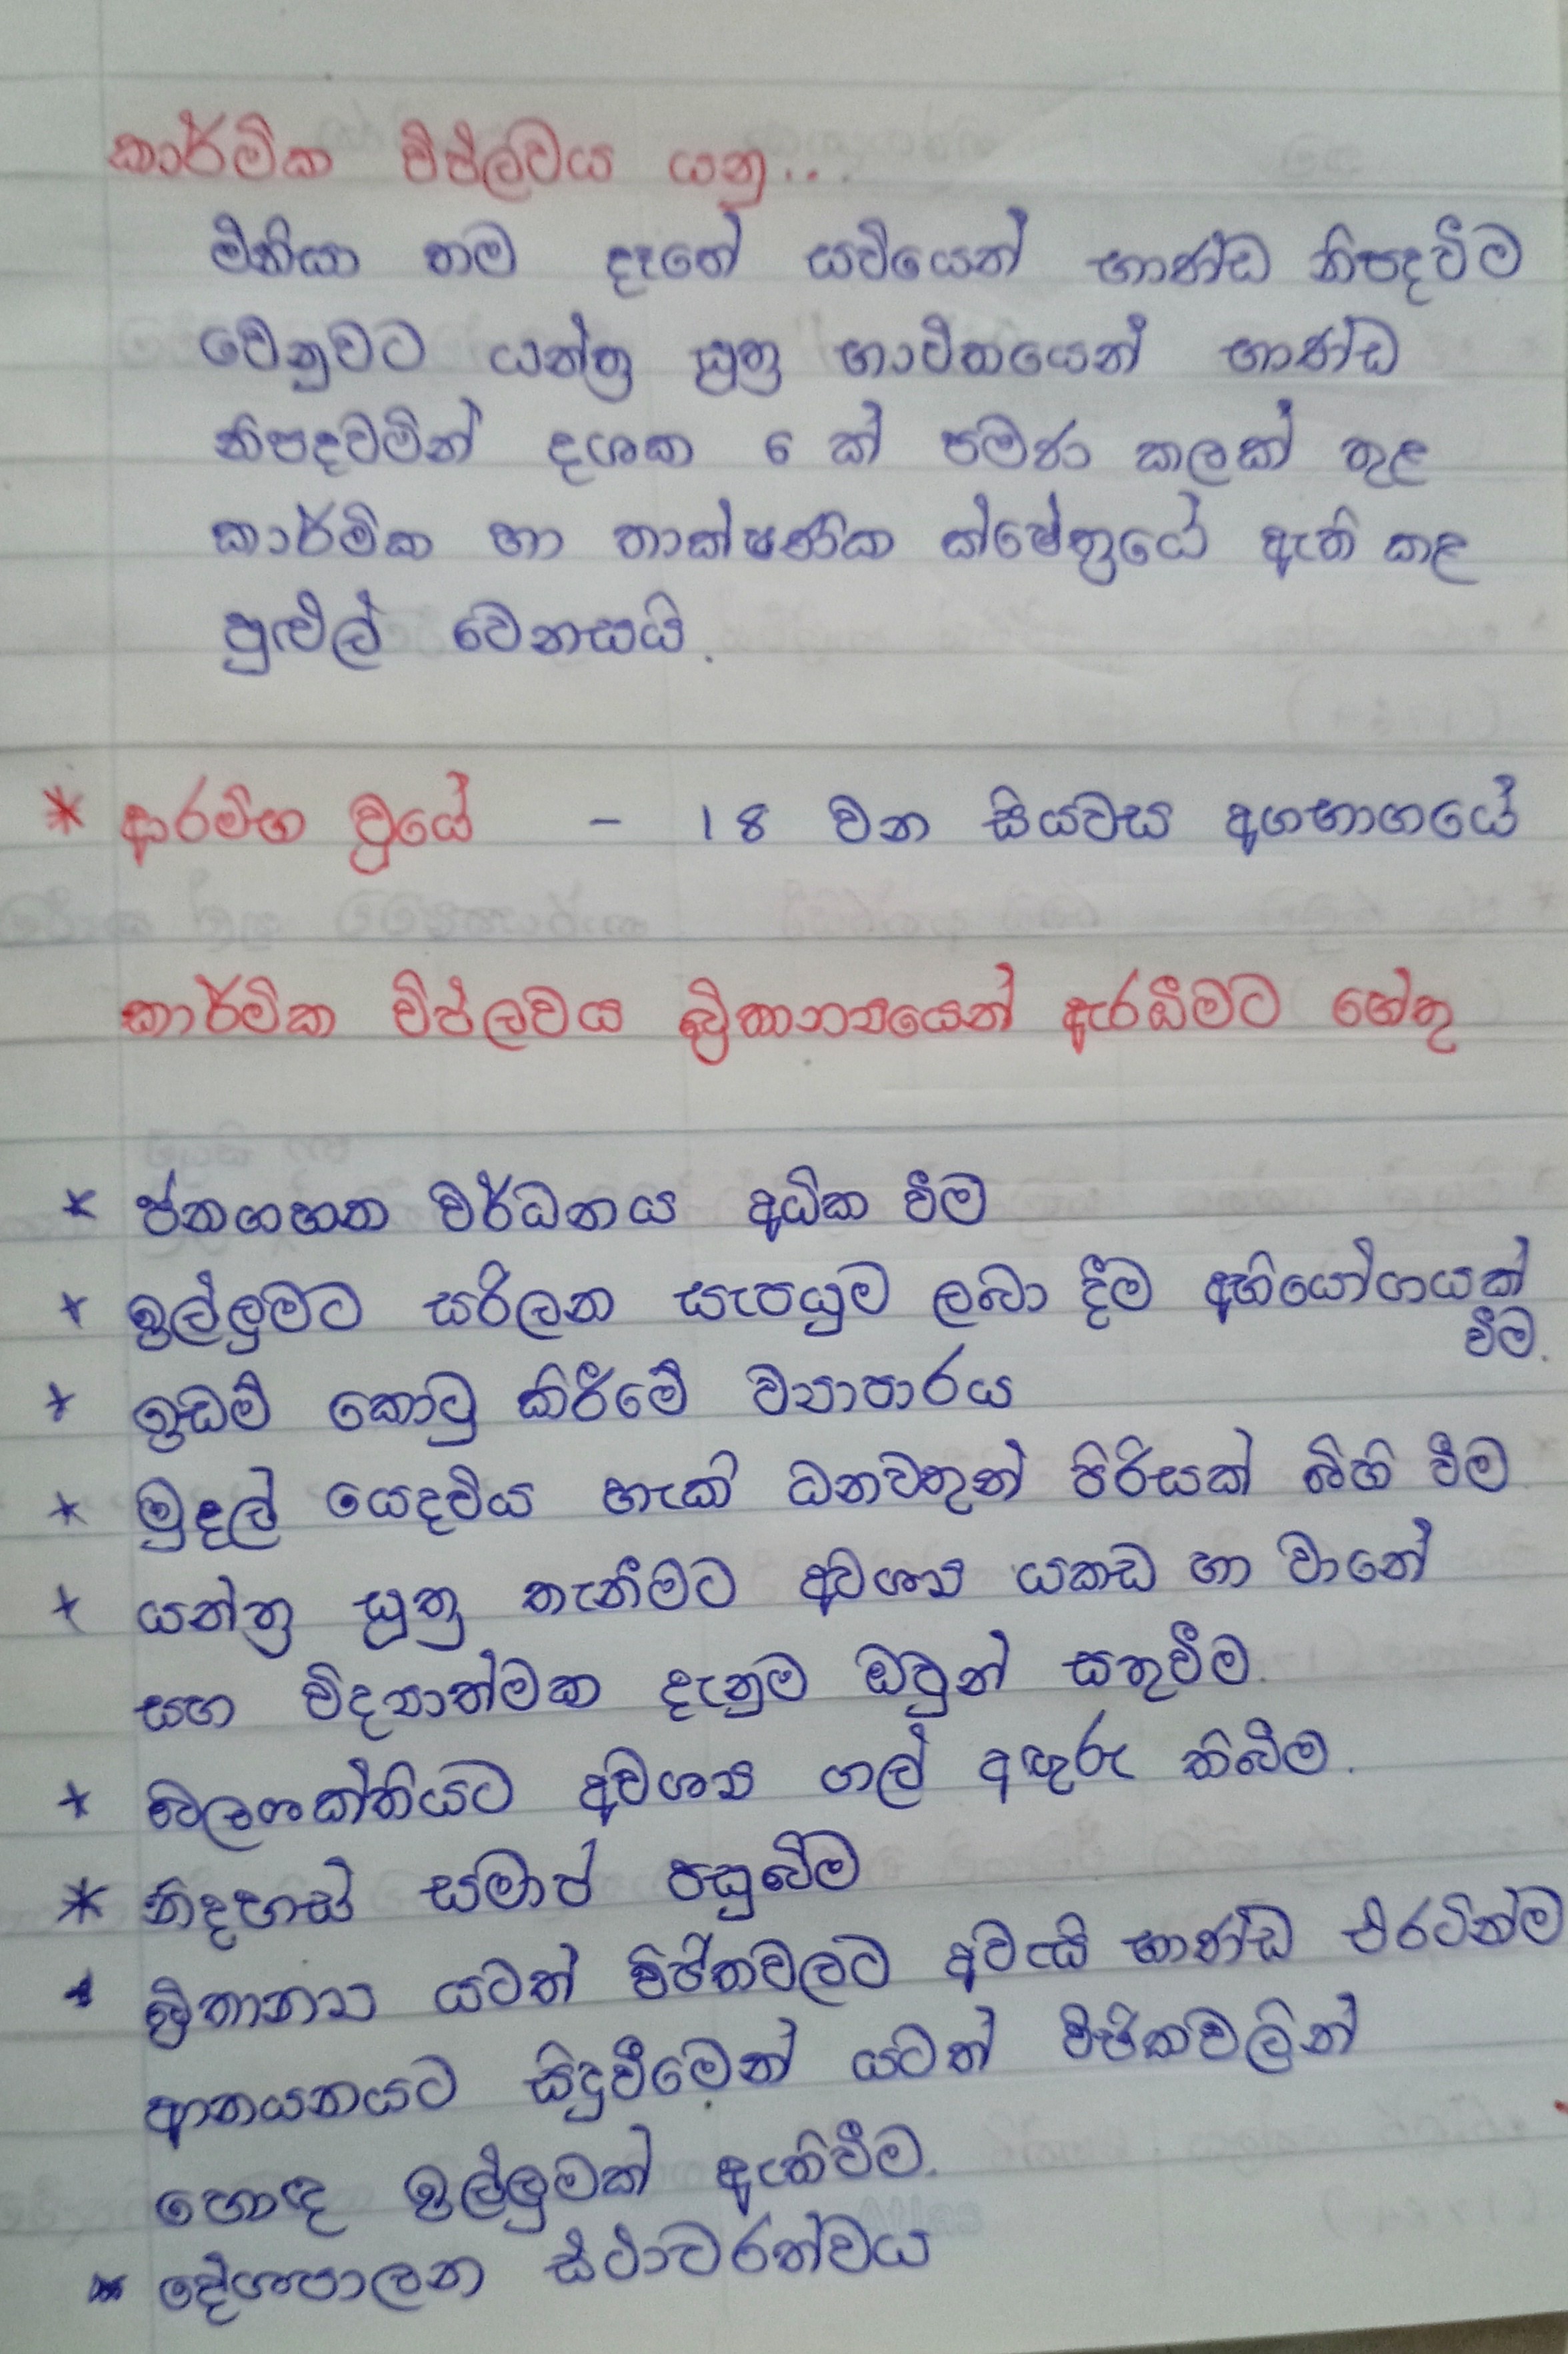 කාර්මික විප්ලවය යනු...
මිනිසා තම දෑතේ සවියෙන් භාණ්ඩ නිපදවීම
වෙනුවට යන්ත්‍ර සූත්‍ර භාවිතයෙන් භාණ්ඩ
නිපදවමින් දශක 6 ක් පමණ කලක් තුළ
කාර්මික හා තාක්ෂණික ක්ෂේත්‍රයේ ඇති කළ
පුළුල් වෙනසයි.
* ආරම්භ වූයේ - 18 වන සියවස අගභාගයේ
කාර්මික විප්ලවය බ්‍රිතාන්‍යයෙන් ඇරඹීමට හේතු
* ජනගහන වර්ධනය අධික වීම
* ඉල්ලුමට සරිලන සැපයුම ලබා දීම අභියෝගයක්
වීම.
* ඉඩම් කොටු කිරීමේ ව්‍යාපාරය
* මුදල් යෙදවිය හැකි ධනවතුන් පිරිසක් බිහි වීම
* යන්ත්‍ර සූත්‍ර තැනීමට අවශ්‍ය යකඩ හා වානේ
සහ විද්‍යාත්මක දැනුම ඔවුන් සතුවීම.
* බලශක්තියට අවශ්‍ය ගල් අඟුරු තිබීම.
* නිදහස් සමාජ පසුබිම
* බ්‍රිතාන්‍ය යටත් විජිතවලට අවැසි භාණ්ඩ එරටින්ම
ආනයනයට සිදුවීමෙන් යටත් විජිතවලින්
හොඳ ඉල්ලුමක් ඇතිවීම.
* දේශපාලන ස්ථාවරත්වය